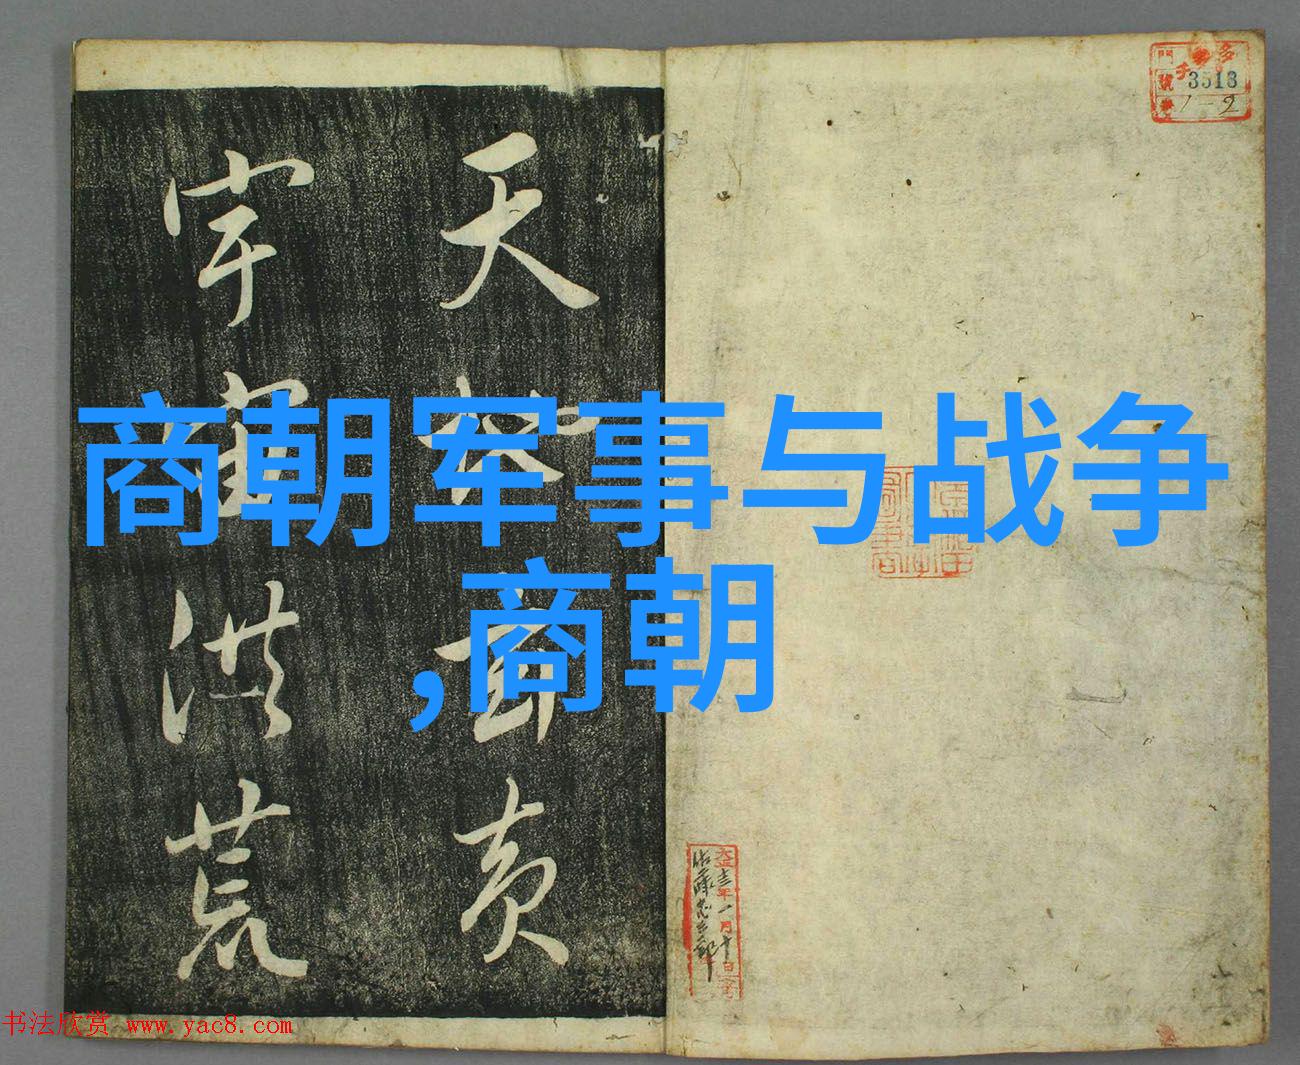 商朝军事与战争
,商朝
天地玄黄
宇宙洪荒
3513
1-2
书法欣赏 www.yac8.com